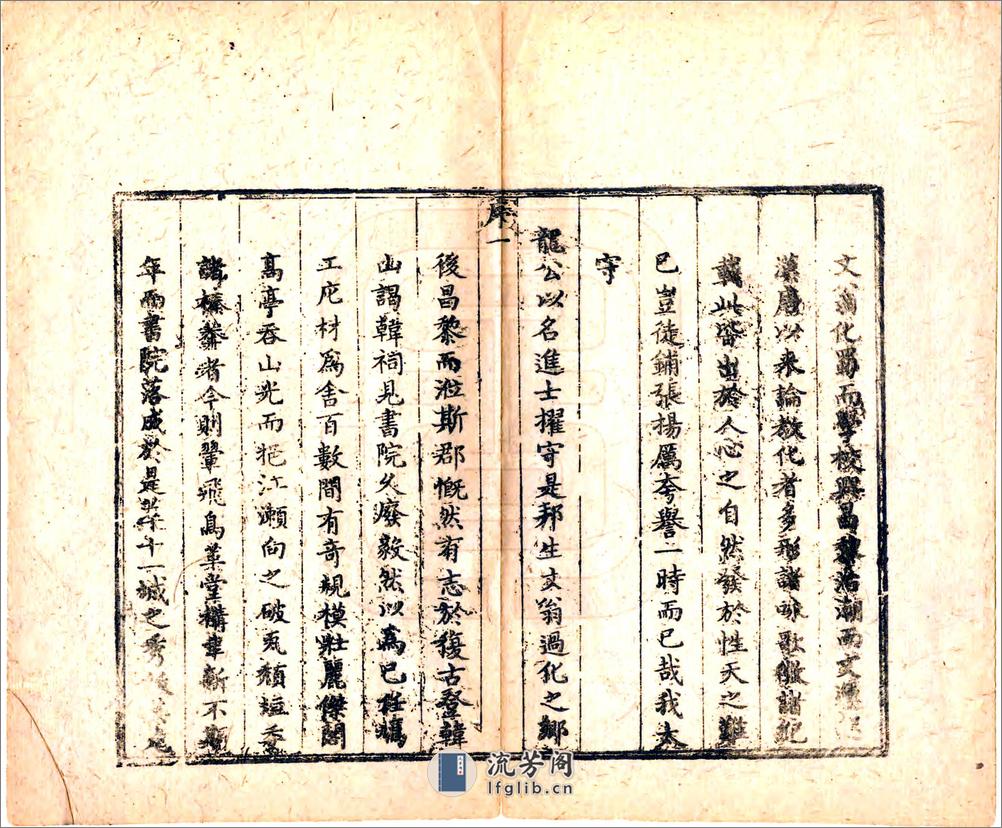 文翁化蜀而學校興昌黎治潮而文風
漢唐以来論教化者多形諸咏歌徵諸紀
載此皆出於人心之自然發於性天之難
已豈徒鋪張揚厲夸譽一時而已哉我太
守
龍公以名進士擢守是邦生文翁過化之鄉
序一
後昌黎而涖斯郡慨然有志於復古登韓
山謁韓祠見書院久廢毅然以為己任鳩
工庀材爲舍百數間有奇規模壯麗傑閣
高亭吞山光而挹江瀬向之破瓦頽垣黍
諸榛者今則翬飛鳥革堂構聿新不
年而書院落成於是十一城之秀
流芳阁
lfglib.cn